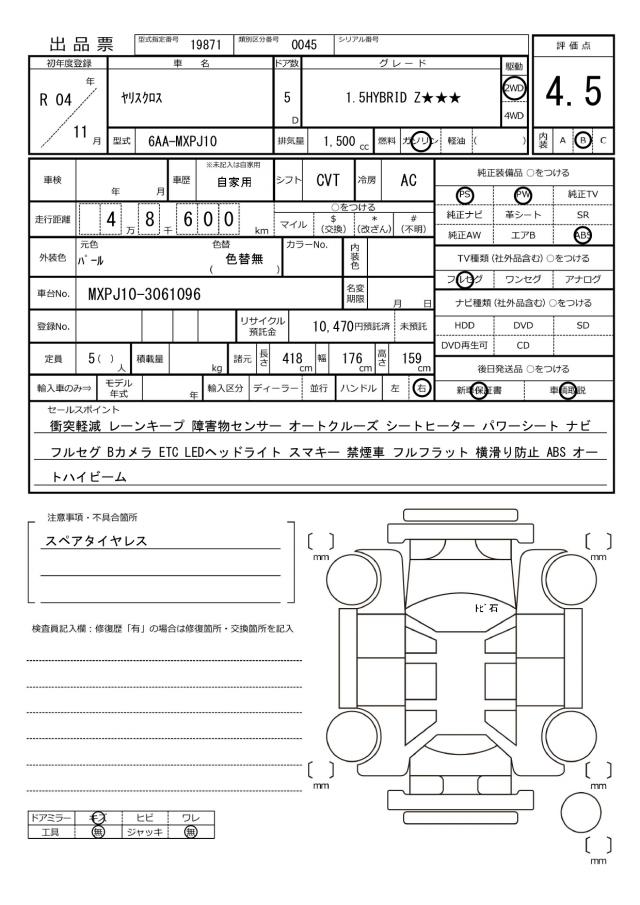 出品票 型式指定番号 19871 類別区分番号 0045 シリアル番号
評価点
4.5
内装 A B C
初年度登録 車名 ドア数 グレード 駆動
R 04 年 11 月
ﾔﾘｽｸﾛｽ 5 D 1.5HYBRID Z★★★ 2WD 4WD
型式 6AA-MXPJ10 排気量 1,500 cc 燃料 ガソリン 軽油 ( )
車検 年 月 車歴 ※未記入は自家用 自家用 シフト CVT 冷房 AC
走行距離 4 万 8 千 6 0 0 km
○をつける
マイル $(交換) *(改ざん) #(不明)
外装色 元色 ﾊﾟｰﾙ 色替 ( 色替無 ) カラーNo. 内装色
車台No. MXPJ10-3061096 名変期限 月 日
登録No. リサイクル預託金 10,470円預託済 未預託
定員 5( ) 人 積載量 kg 諸元 長さ 418 cm 幅 176 cm 高さ 159 cm
輸入車のみ⇒ モデル年式 年 輸入区分 ディーラー 並行 ハンドル 左 右
純正装備品 ○をつける
PS PW 純正TV
純正ナビ 革シート SR
純正AW エアB ABS
TV種類(社外品含む) ○をつける
フルセグ ワンセグ アナログ
ナビ種類(社外品含む) ○をつける
HDD DVD SD
DVD再生可 CD
後日発送品 ○をつける
新車保証書 車輌取説
セールスポイント
衝突軽減 レーンキープ 障害物センサー オートクルーズ シートヒーター パワーシート ナビ
フルセグ Bカメラ ETC LEDヘッドライト スマキー 禁煙車 フルフラット 横滑り防止 ABS オー
トハイビーム
注意事項・不具合箇所
スペアタイヤレス
検査員記入欄：修復歴「有」の場合は修復箇所・交換箇所を記入
ドアミラー キズ ヒビ ワレ
工具 無 ジャッキ 無
〔 〕 mm
〔 〕 mm
ﾄﾋﾞ石
〔 〕 mm
〔 〕 mm
〔 〕 mm